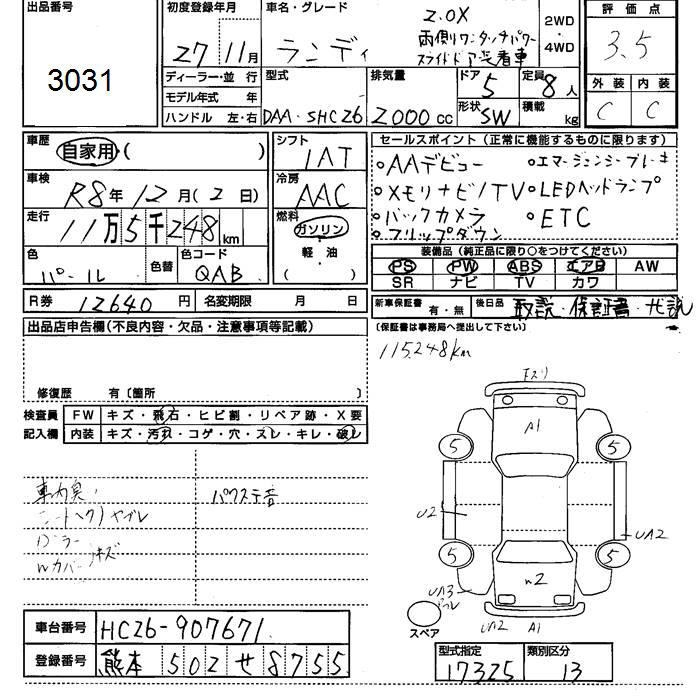 出品番号
3031
初度登録年月
27年11月
ディーラー・並 行
モデル年式 年
ハンドル 左・右
車名・グレード
ランディ
2.0X
両側ワンタッチパワー
スライドドア装着車
2WD
・
4WD
型式
DAA-SHC26
排気量
2000cc
ドア
5
形状
SW
定員
8人
積載
kg
評価点
3.5
外装
内装
C
C
車歴
自家用 ( )
車検
R8年12月(2日)
走行
11万5千248km
色
パール
色替
色コード
QAB
シフト
IAT
冷房
AAC
燃料
ガソリン
軽油
( )
R券 12640円
名変期限 月 日
セールスポイント(正常に機能するものに限ります)
・AAデビュー ・エマージェンシーブレーキ
・メモリナビ/TV ・LEDヘッドランプ
・バックカメラ ・ETC
・フリップダウン
装備品(純正品に限り○をつけてください)
PS PW ABS エアB AW
SR ナビ TV カワ
新車保証書 有・無
後日品 取説・保証書・
(保証書は事務局へ提出して下さい)
出品店申告欄(不良内容・欠品・注意事項等記載)
修復歴 有〔箇所 〕
115,248km
検査員
記入欄
FW キズ・飛石・ヒビ割・リペア跡・X要
内装 キズ・汚れ・コゲ・穴・スレ・キレ・破レ
パワステ音
A1
5
5
U2
UA2
5
5
W2
UA3
UA2
A1
スペア
車台番号 HC26-907671
登録番号 熊本 502 せ 8755
型式指定
17325
類別区分
13